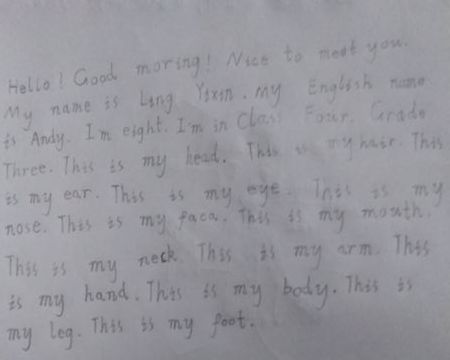 Hello! Good moring! Nice to meet you.
My name is Ling Yixin. My English name
is Andy. I'm eight. I'm in Class Four. Grade
Three. This is my head. This is my hair. This
is my ear. This is my eye. This is my
nose. This is my faca. This is my mouth.
This is my neck This is my arm. This
is my hand. This is my body. This is
my leg. This is my foot.